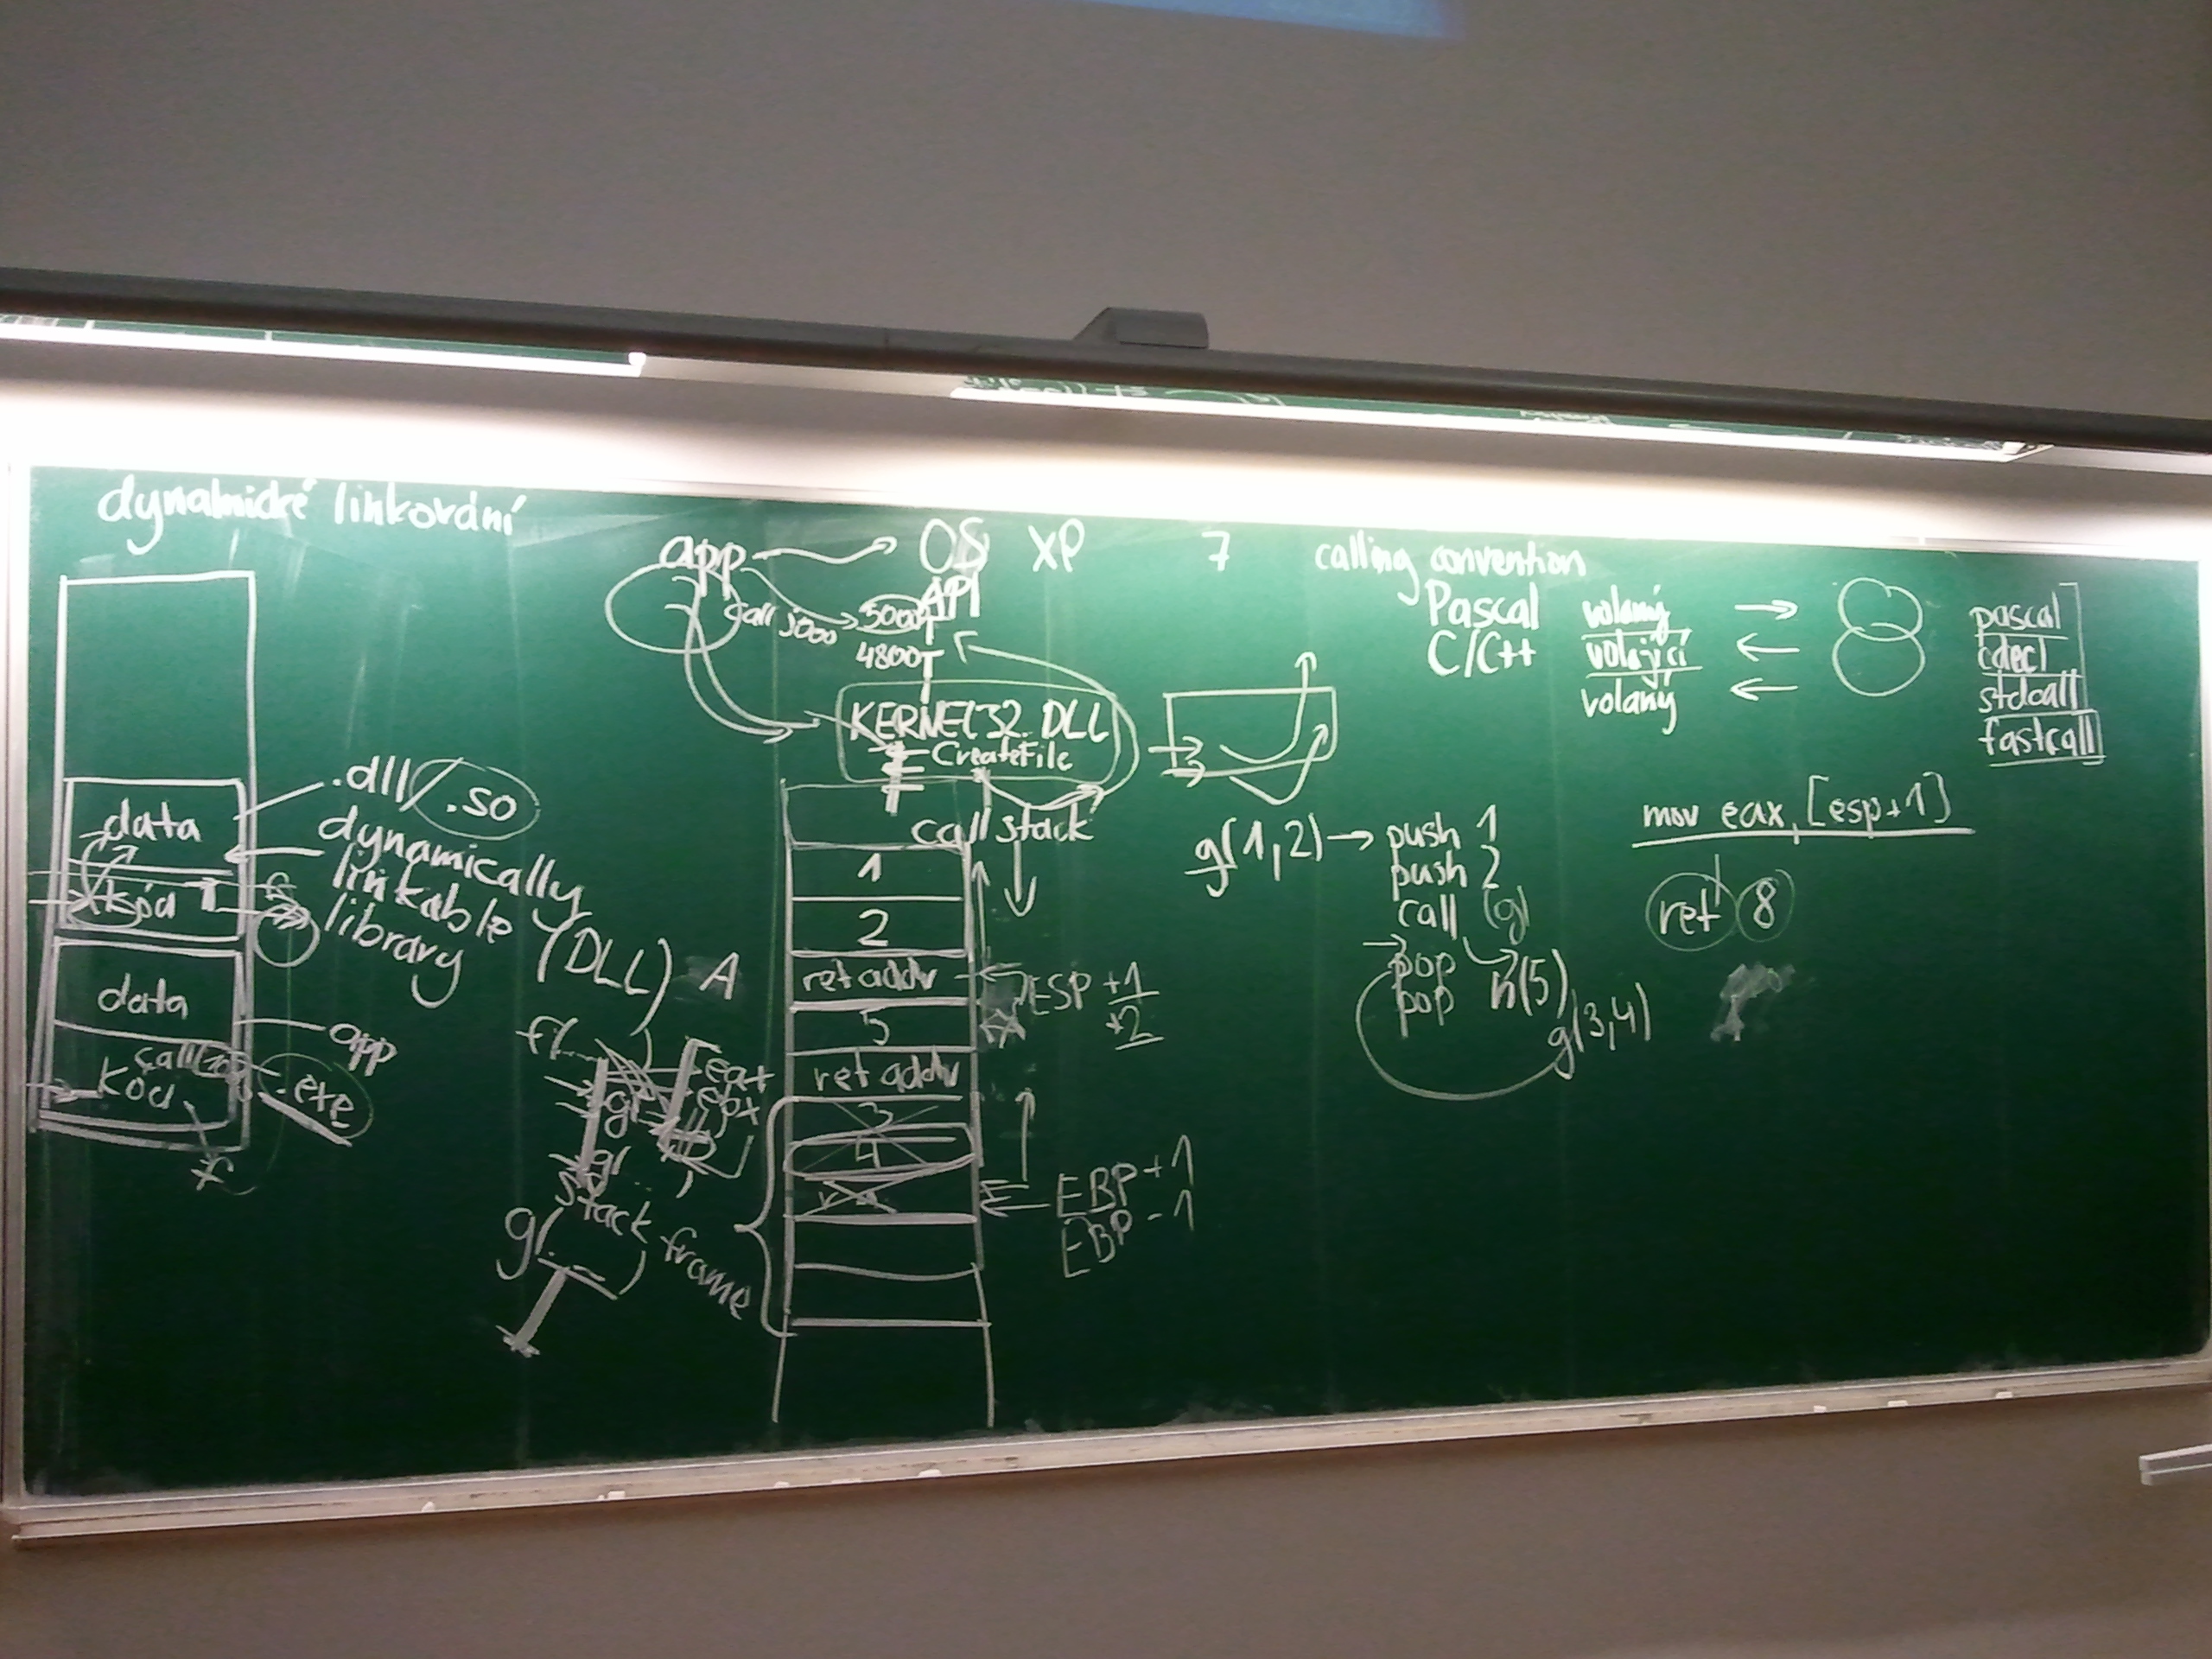 dynamické linkování
data
kód
data
call
kód
f
.dll/.so
dynamically
linkable
library
(DLL) A
app
.exe
app
call 5000
OS XP 7
API
5000
4800
KERNEL32.DLL
CreateFile
call stack
1
2
ret addr
5
ret addr
3
4
ESP +1
+2
EBP+1
EBP-1
f(
g(
g(
eax
ebx
stack frame
g(
)
calling convention
Pascal volaný →
C/C++ volající ←
volaný ←
pascal
cdecl
stdcall
fastcall
g(1,2) → push 1
push 2
call (g)
pop
pop
h(5)
g(3,4)
mov eax, [esp+1]
ret 8